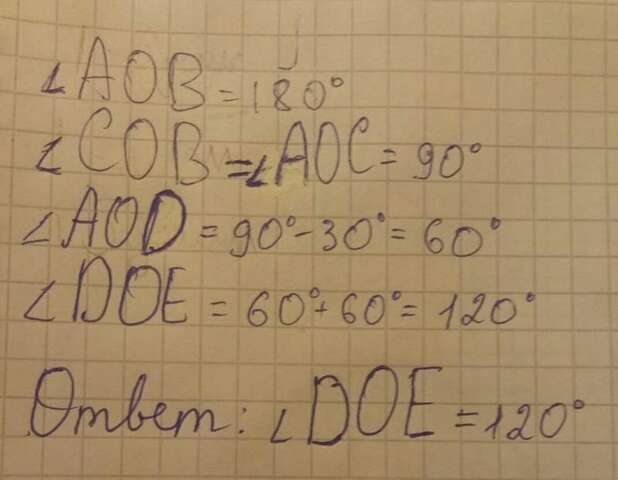 ∠AOB = 180°
∠COB = ∠AOC = 90°
∠AOD = 90° - 30° = 60°
∠DOE = 60° + 60° = 120°
Ответ: ∠DOE = 120°